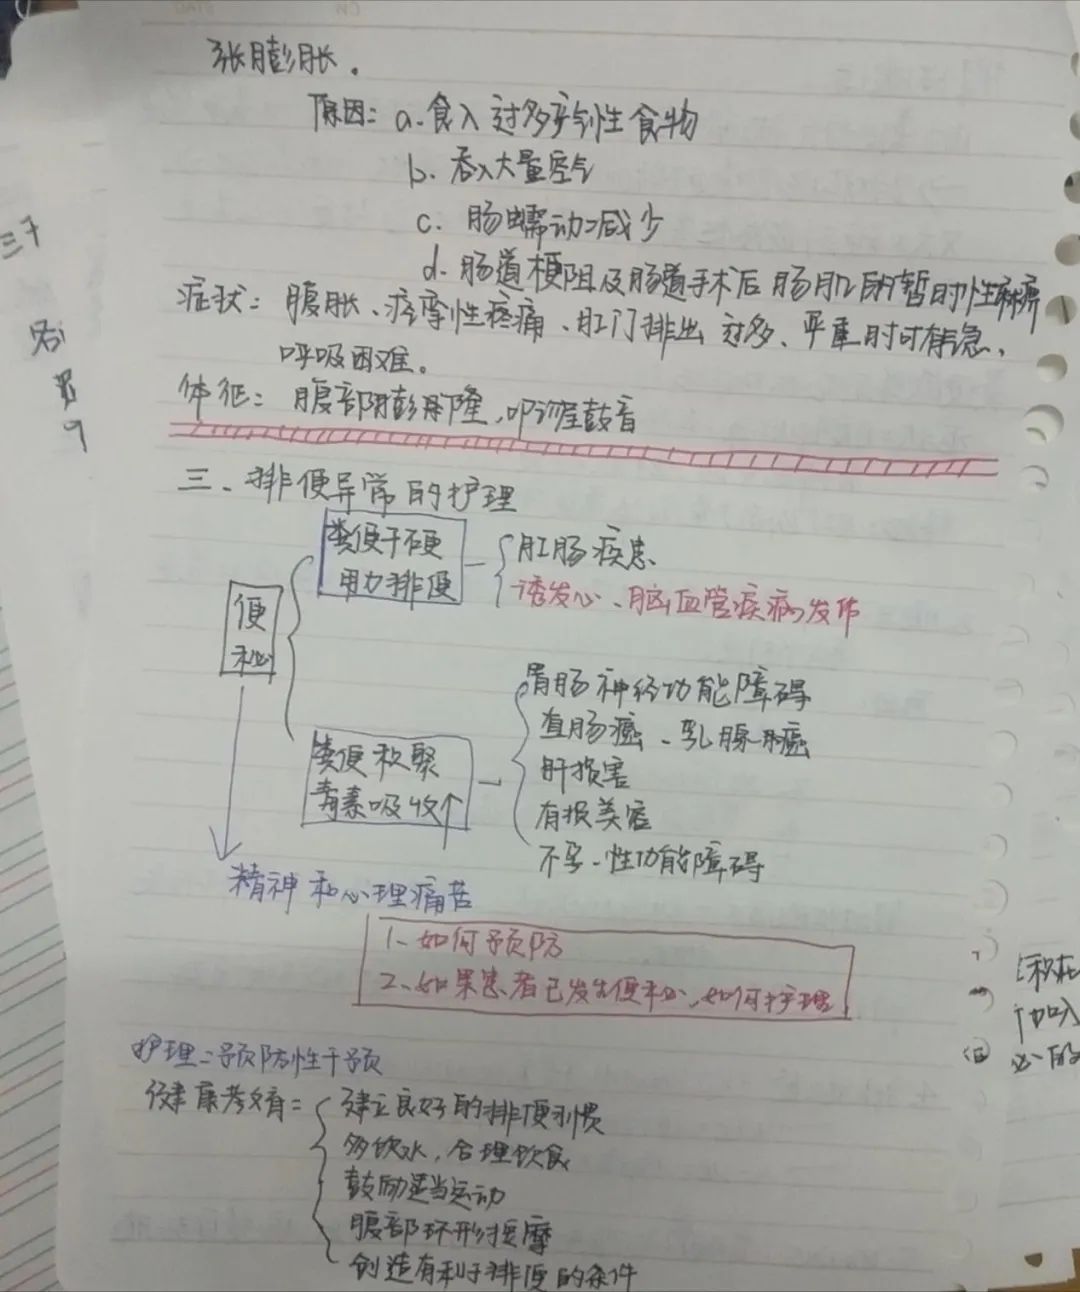 张膨胀。
原因：a.食入过多产气性食物
b.吞入大量空气
c.肠蠕动减少
d.肠道梗阻及肠道手术后肠肌的暂时性麻痹
症状：腹胀、痉挛性疼痛、肛门排出过多、严重时可有气急、
呼吸困难。
体征：腹部膨隆，叩诊鼓音
三、排便异常的护理
便秘
粪便干硬
用力排便
肛肠疾患
诱发心、脑血管疾病发作
粪便积聚
毒素吸收↑
胃肠神经功能障碍
直肠癌、乳腺癌
肝损害
有损美容
不孕－性功能障碍
精神和心理痛苦
1、如何预防
2、如果患者已发生便秘，如何护理
护理：预防性干预
健康教育：
建立良好的排便习惯
多饮水，合理饮食
鼓励适当运动
腹部环形按摩
创造有利于排便的条件